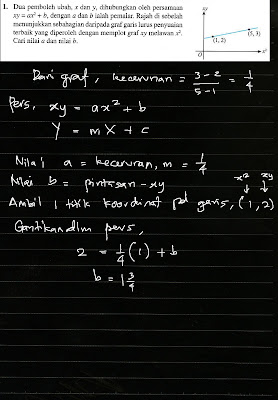 1. Dua pemboleh ubah, x dan y, dihubungkan oleh persamaan
xy = ax² + b, dengan a dan b ialah pemalar. Rajah di sebelah
menunjukkan sebahagian daripada graf garis lurus penyuaian
terbaik yang diperoleh dengan memplot graf xy melawan x².
Cari nilai a dan nilai b.
xy
(5, 3)
(1, 2)
O
x²
Dari graf, kecerunan = 3 - 2 / 5 - 1 = 1/4
Pers, xy = ax² + b
Y = mX + c
Nilai a = kecerunan, m = 1/4
Nilai b = pintasan - xy
x² xy
↓ ↓
Ambil 1 titik koordinat pd garis, (1, 2)
Gantikan dlm pers,
2 = 1/4 (1) + b
b = 1 3/4